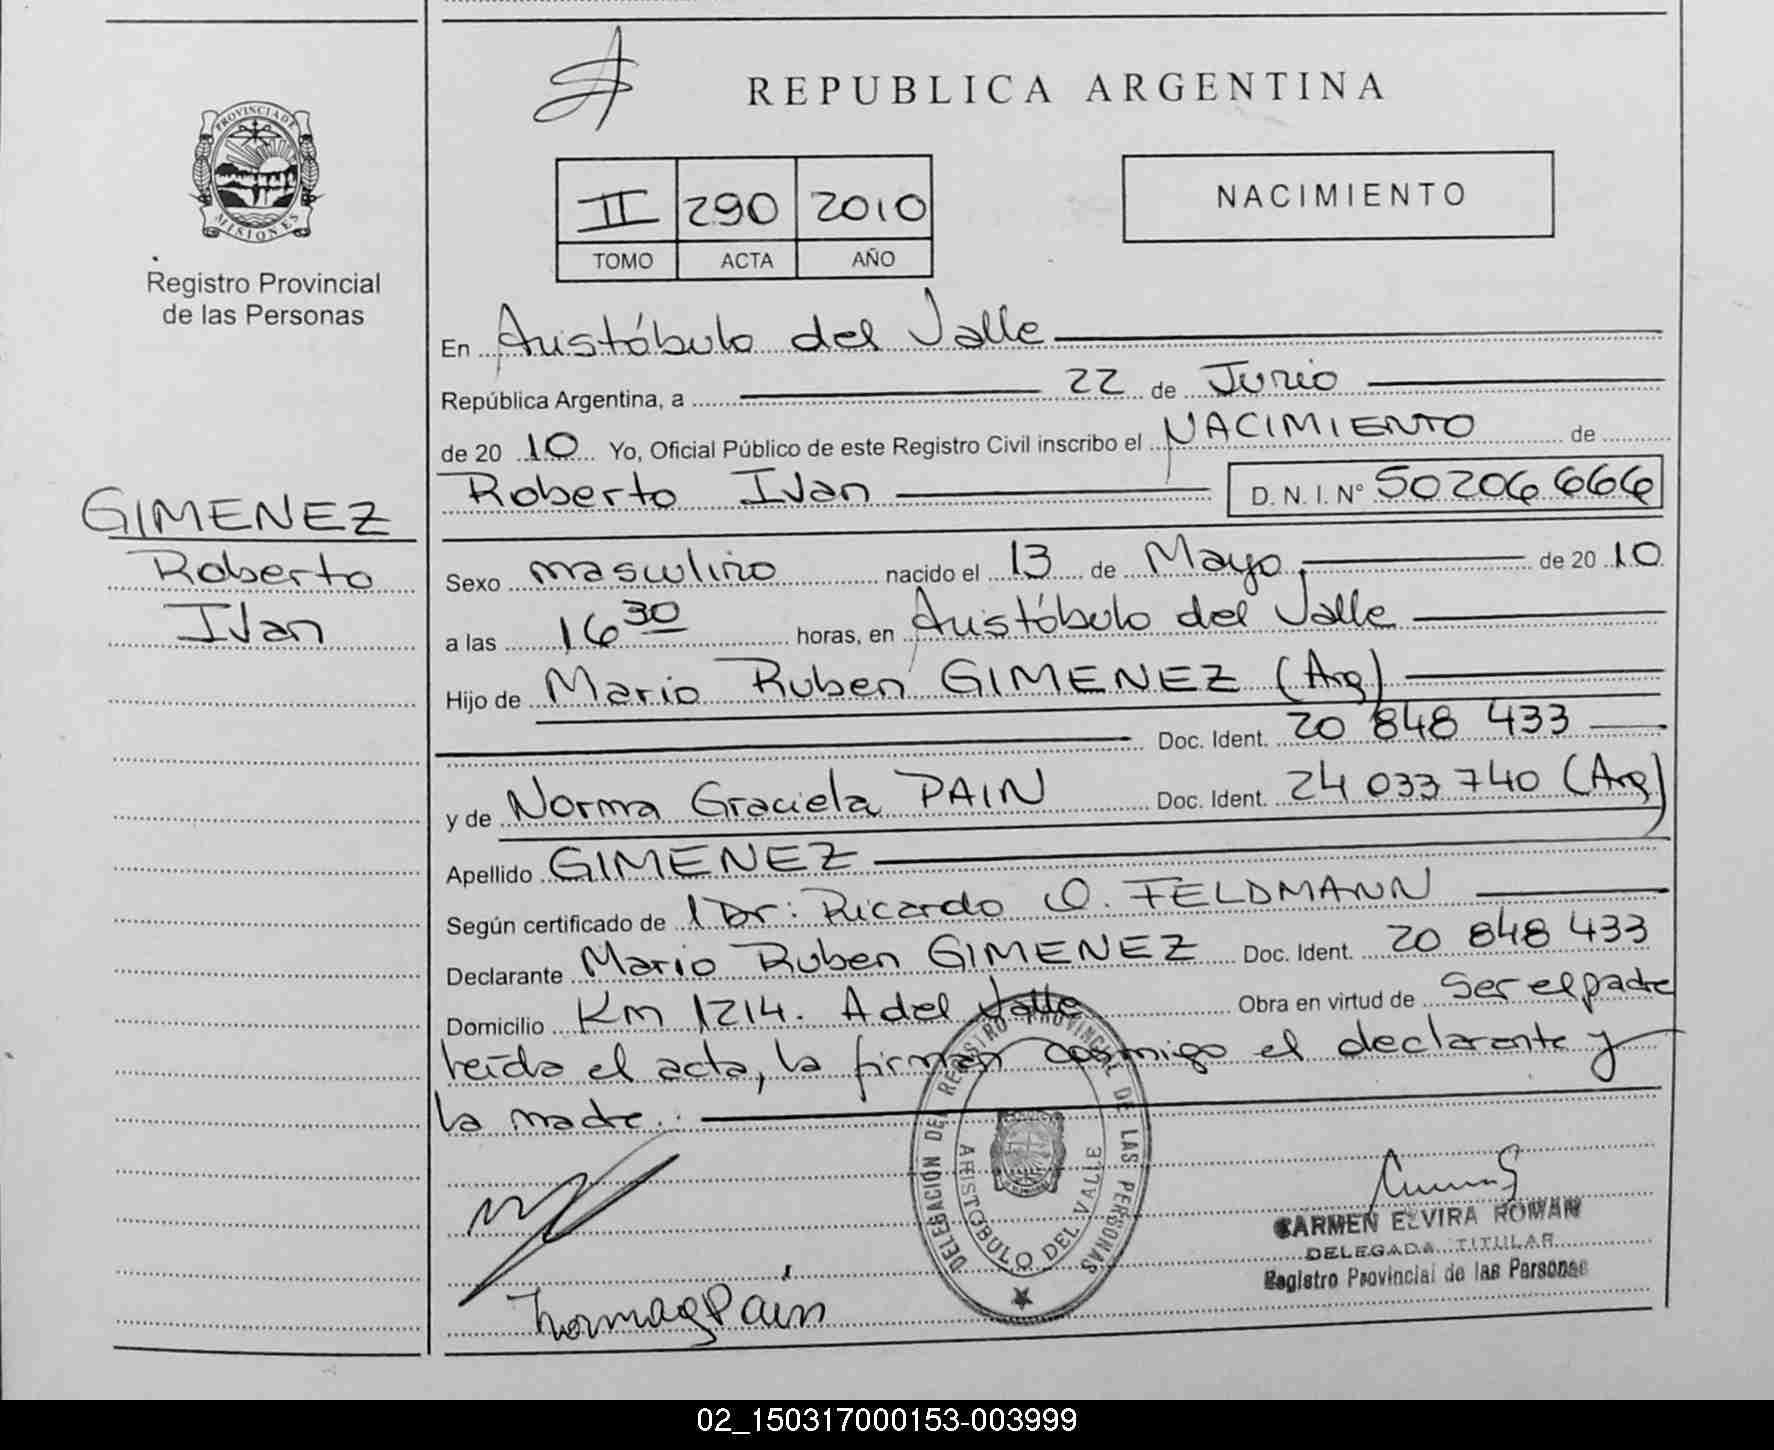 REPUBLICA ARGENTINA
PROVINCIA DE
MISIONES
Registro Provincial
de las Personas
II 290 2010
TOMO ACTA AÑO
NACIMIENTO
En Aristóbulo del Valle
República Argentina, a 22 de Junio
de 2010 Yo, Oficial Público de este Registro Civil inscribo el NACIMIENTO de
Roberto Ivan D. N. I. N° 50206666
GIMENEZ
Roberto
Ivan
Sexo masculino nacido el 13 de Mayo de 2010
a las 16 30 horas, en Aristóbulo del Valle
Hijo de Mario Ruben GIMENEZ (Arg)
Doc. Ident. 20 848 433
y de Norma Graciela PAIN Doc. Ident. 24 033 740 (Arg)
Apellido GIMENEZ
Según certificado de l Dr: Ricardo O. FELDMANN
Declarante Mario Ruben GIMENEZ Doc. Ident. 20 848 433
Domicilio Km 1214. A del Valle Obra en virtud de Ser el padre
leída el acta, la firman cosmigo el declarante y
la madre.
DELEGACIÓN DEL REGISTRO PROVINCIAL DE LAS PERSONAS
ARISTOBULO DEL VALLE
CARMEN ELVIRA ROMAN
DELEGADA TITULAR
Registro Provincial de las Personas
Norma G Pain
02_150317000153-003999